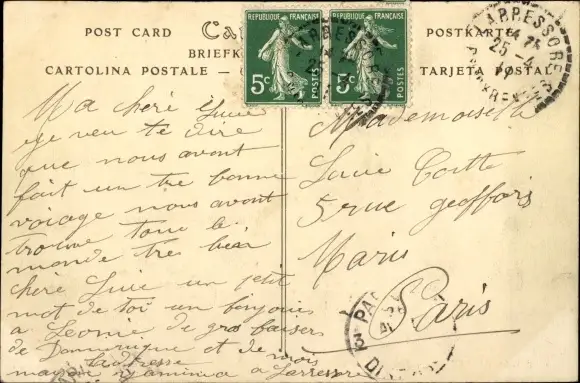 POST CARD
BRIEFK
CARTOLINA POSTALE
POSTKARTE
TARJETA POSTAL
REPUBLIQUE FRANÇAISE
5c
POSTES
REPUBLIQUE FRANÇAISE
5c
POSTES
ARRESSORE
25 4
Ma cheré Lucie
ege veu te dire
que nous avont
fait un tre bonne
voiage nous avont
trouve tout le
monde tre bien
cheré Lucie un petit
mot de toi un bonjour
a Leonie de gro baisers
de Dominique et de mois
ladresse
a Larressore
Mademoiselle
Lucie
5 rue geoffrois
Maris
Paris